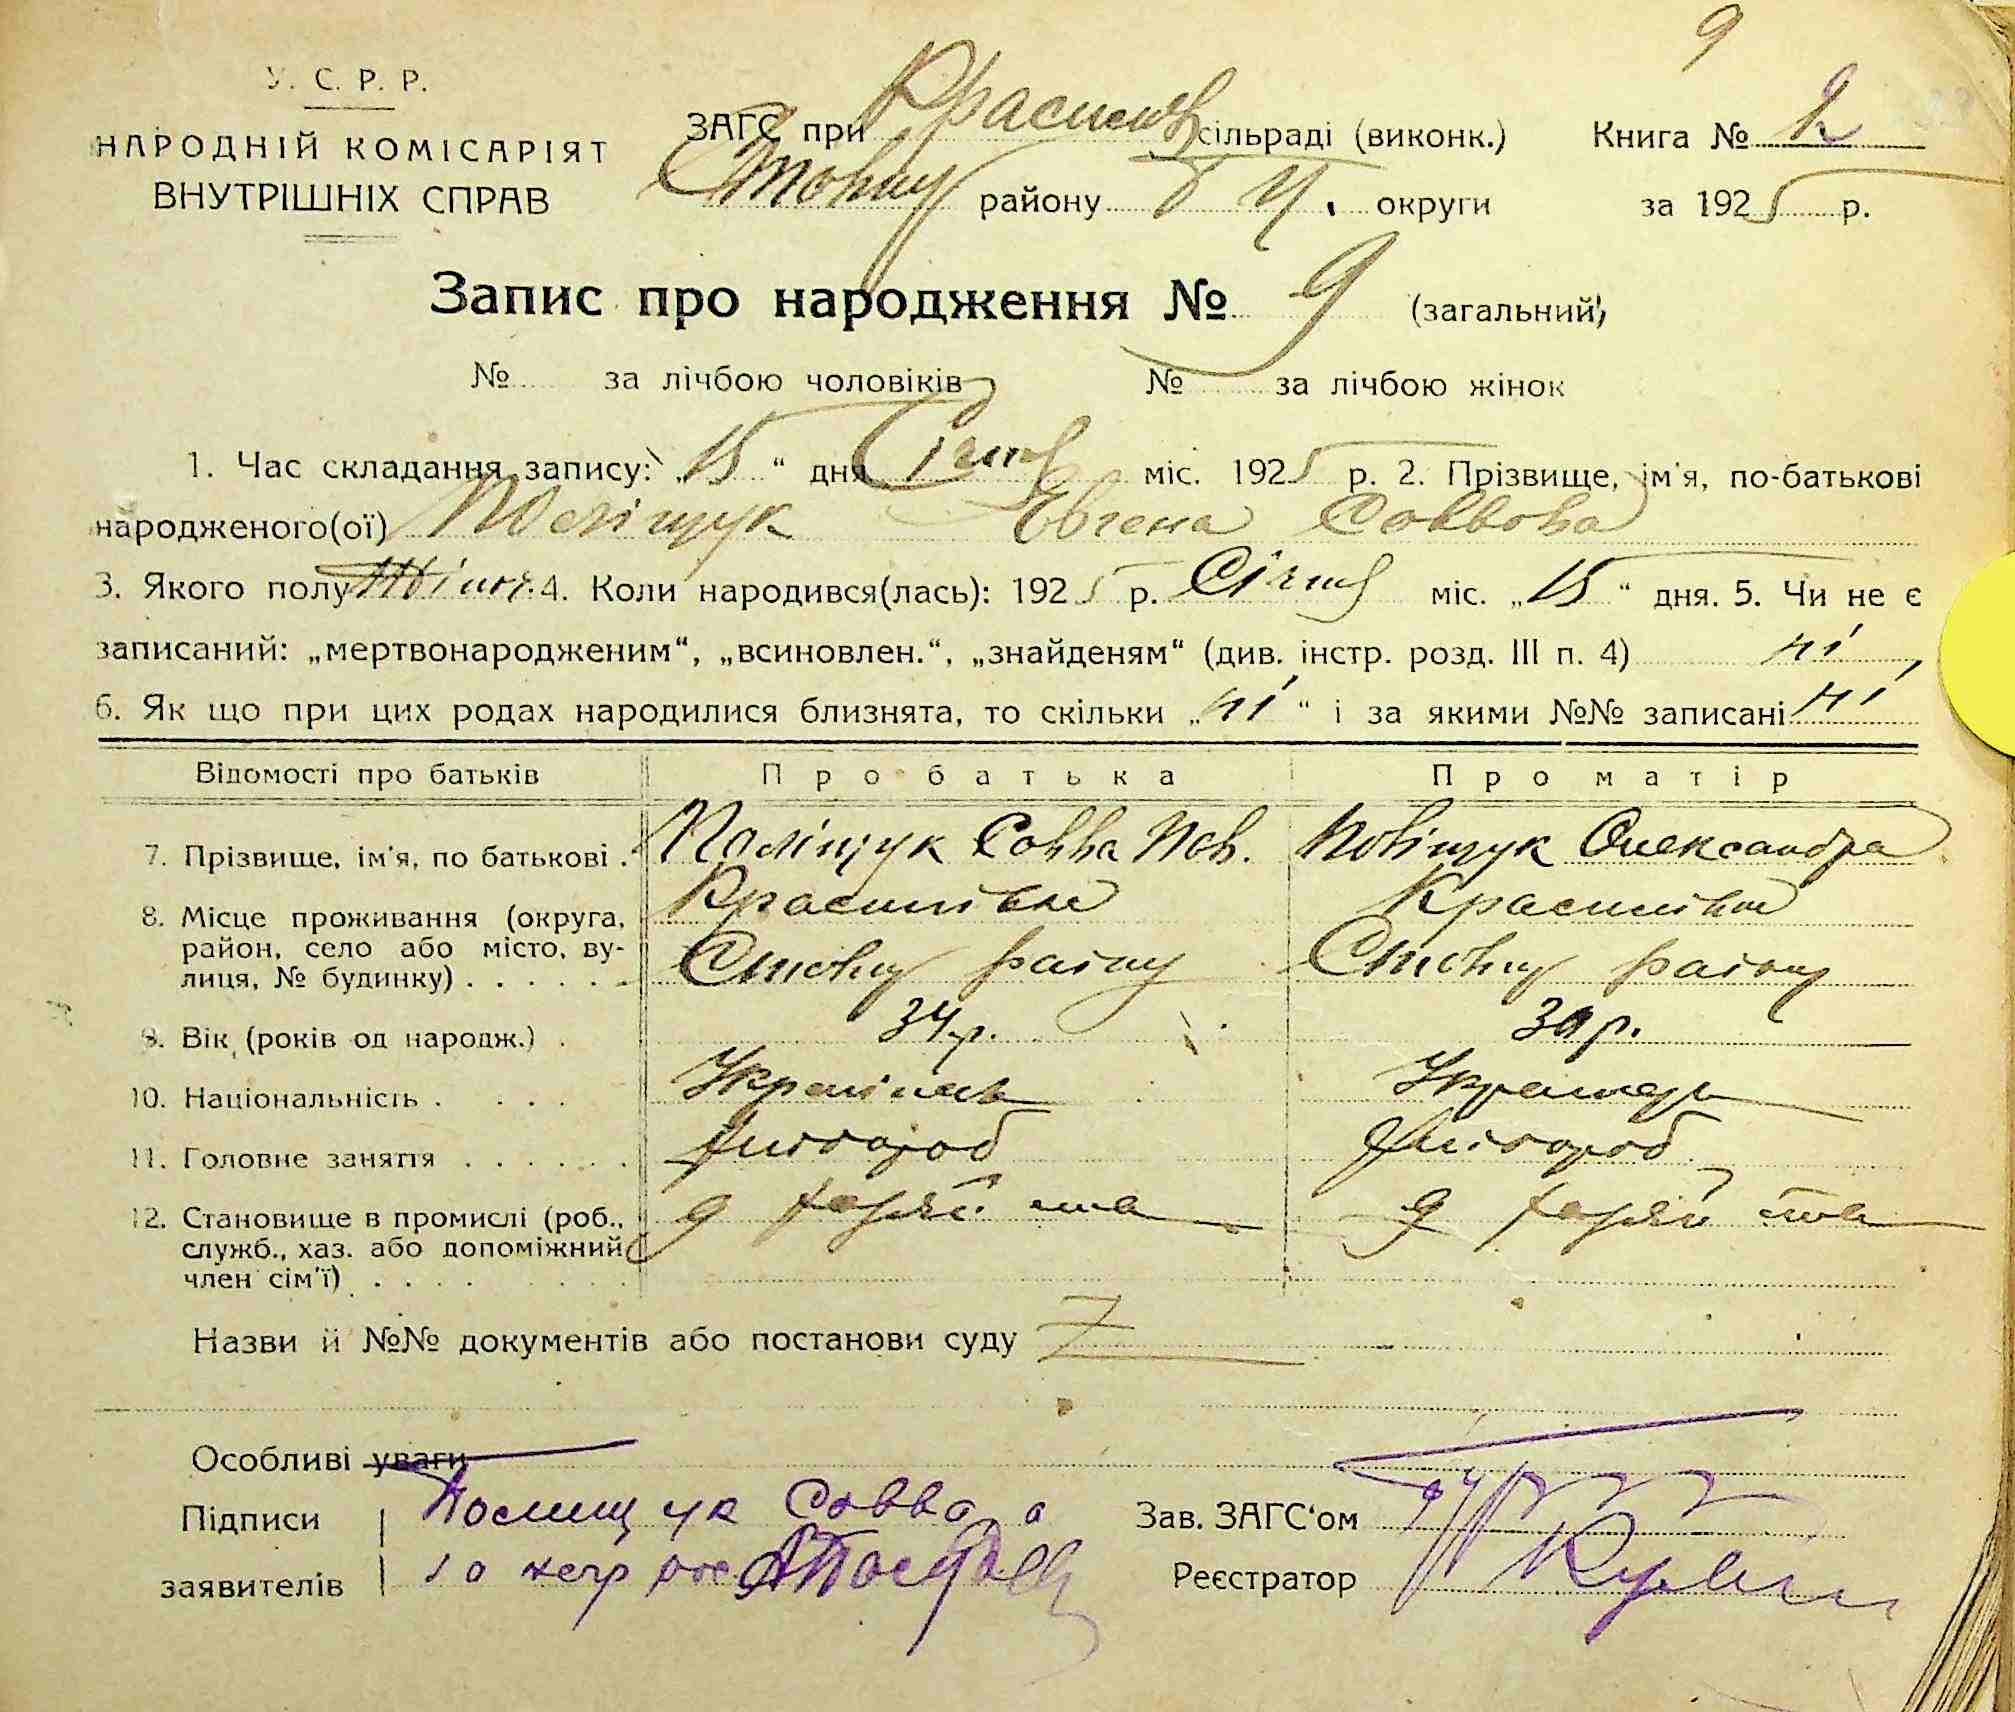 9
У. С. Р. Р.
НАРОДНІЙ КОМІСАРІЯТ
ВНУТРІШНІХ СПРАВ
ЗАГС при Красилів сільраді (виконк.) Книга № 2
району Б Ц. округи за 1925 р.
Запис про народження № 9 (загальний)
№ за лічбою чоловіків № за лічбою жінок
1. Час складання запису: „15“ дня Січня міс. 1925 р. 2. Прізвище, ім'я, по-батькові
народженого(ої) Поліщук Евгена Саввова
3. Якого полу Жіноч. 4. Коли народився(лась): 1925 р. Січня міс. „15“ дня. 5. Чи не є
записаний: „мертвонародженим“, „всиновлен.“, „знайденям“ (див. інстр. розд. III п. 4) ні,
6. Як що при цих родах народилися близнята, то скільки „ні“ і за якими №№ записані ні
Відомості про батьків Про батька Про матір
7. Прізвище, ім'я, по батькові . Поліщук Савва Поліщук Олександра
8. Місце проживання (округа, район, село або місто, вулиця, № будинку) . . . . . . Красилівка Ставищ району Красилівка Ставищ району
9. Вік (років од народж.) . 34 р. 30 р.
10. Національність . . . . Українець Українець
11. Головне заняття . . . . . . Хлібороб Хлібороб
12. Становище в промислі (роб., служб., хаз. або допоміжний член сім'ї) . . . .
Назви й №№ документів або постанови суду
Особливі уваги
Підписи Полищук Савва а
заявителів за негр
Зав. ЗАГС'ом
Реєстратор